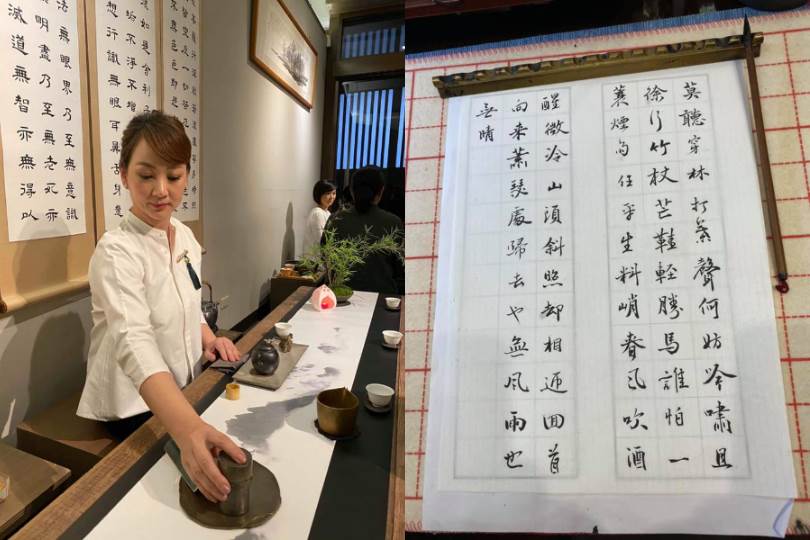 如是舍利子
垢不淨不增
想行識無眼耳鼻舌身意
法無眼界乃至無意識
明盡乃至無老死亦
滅道無智亦無得以
莫聽穿林打葉聲何妨吟嘯且
徐行竹杖芒鞋輕勝馬誰怕一
蓑煙雨任平生料峭春風吹酒
醒微冷山頭斜照却相迎回首
向來蕭瑟處歸去也無風雨也
無晴